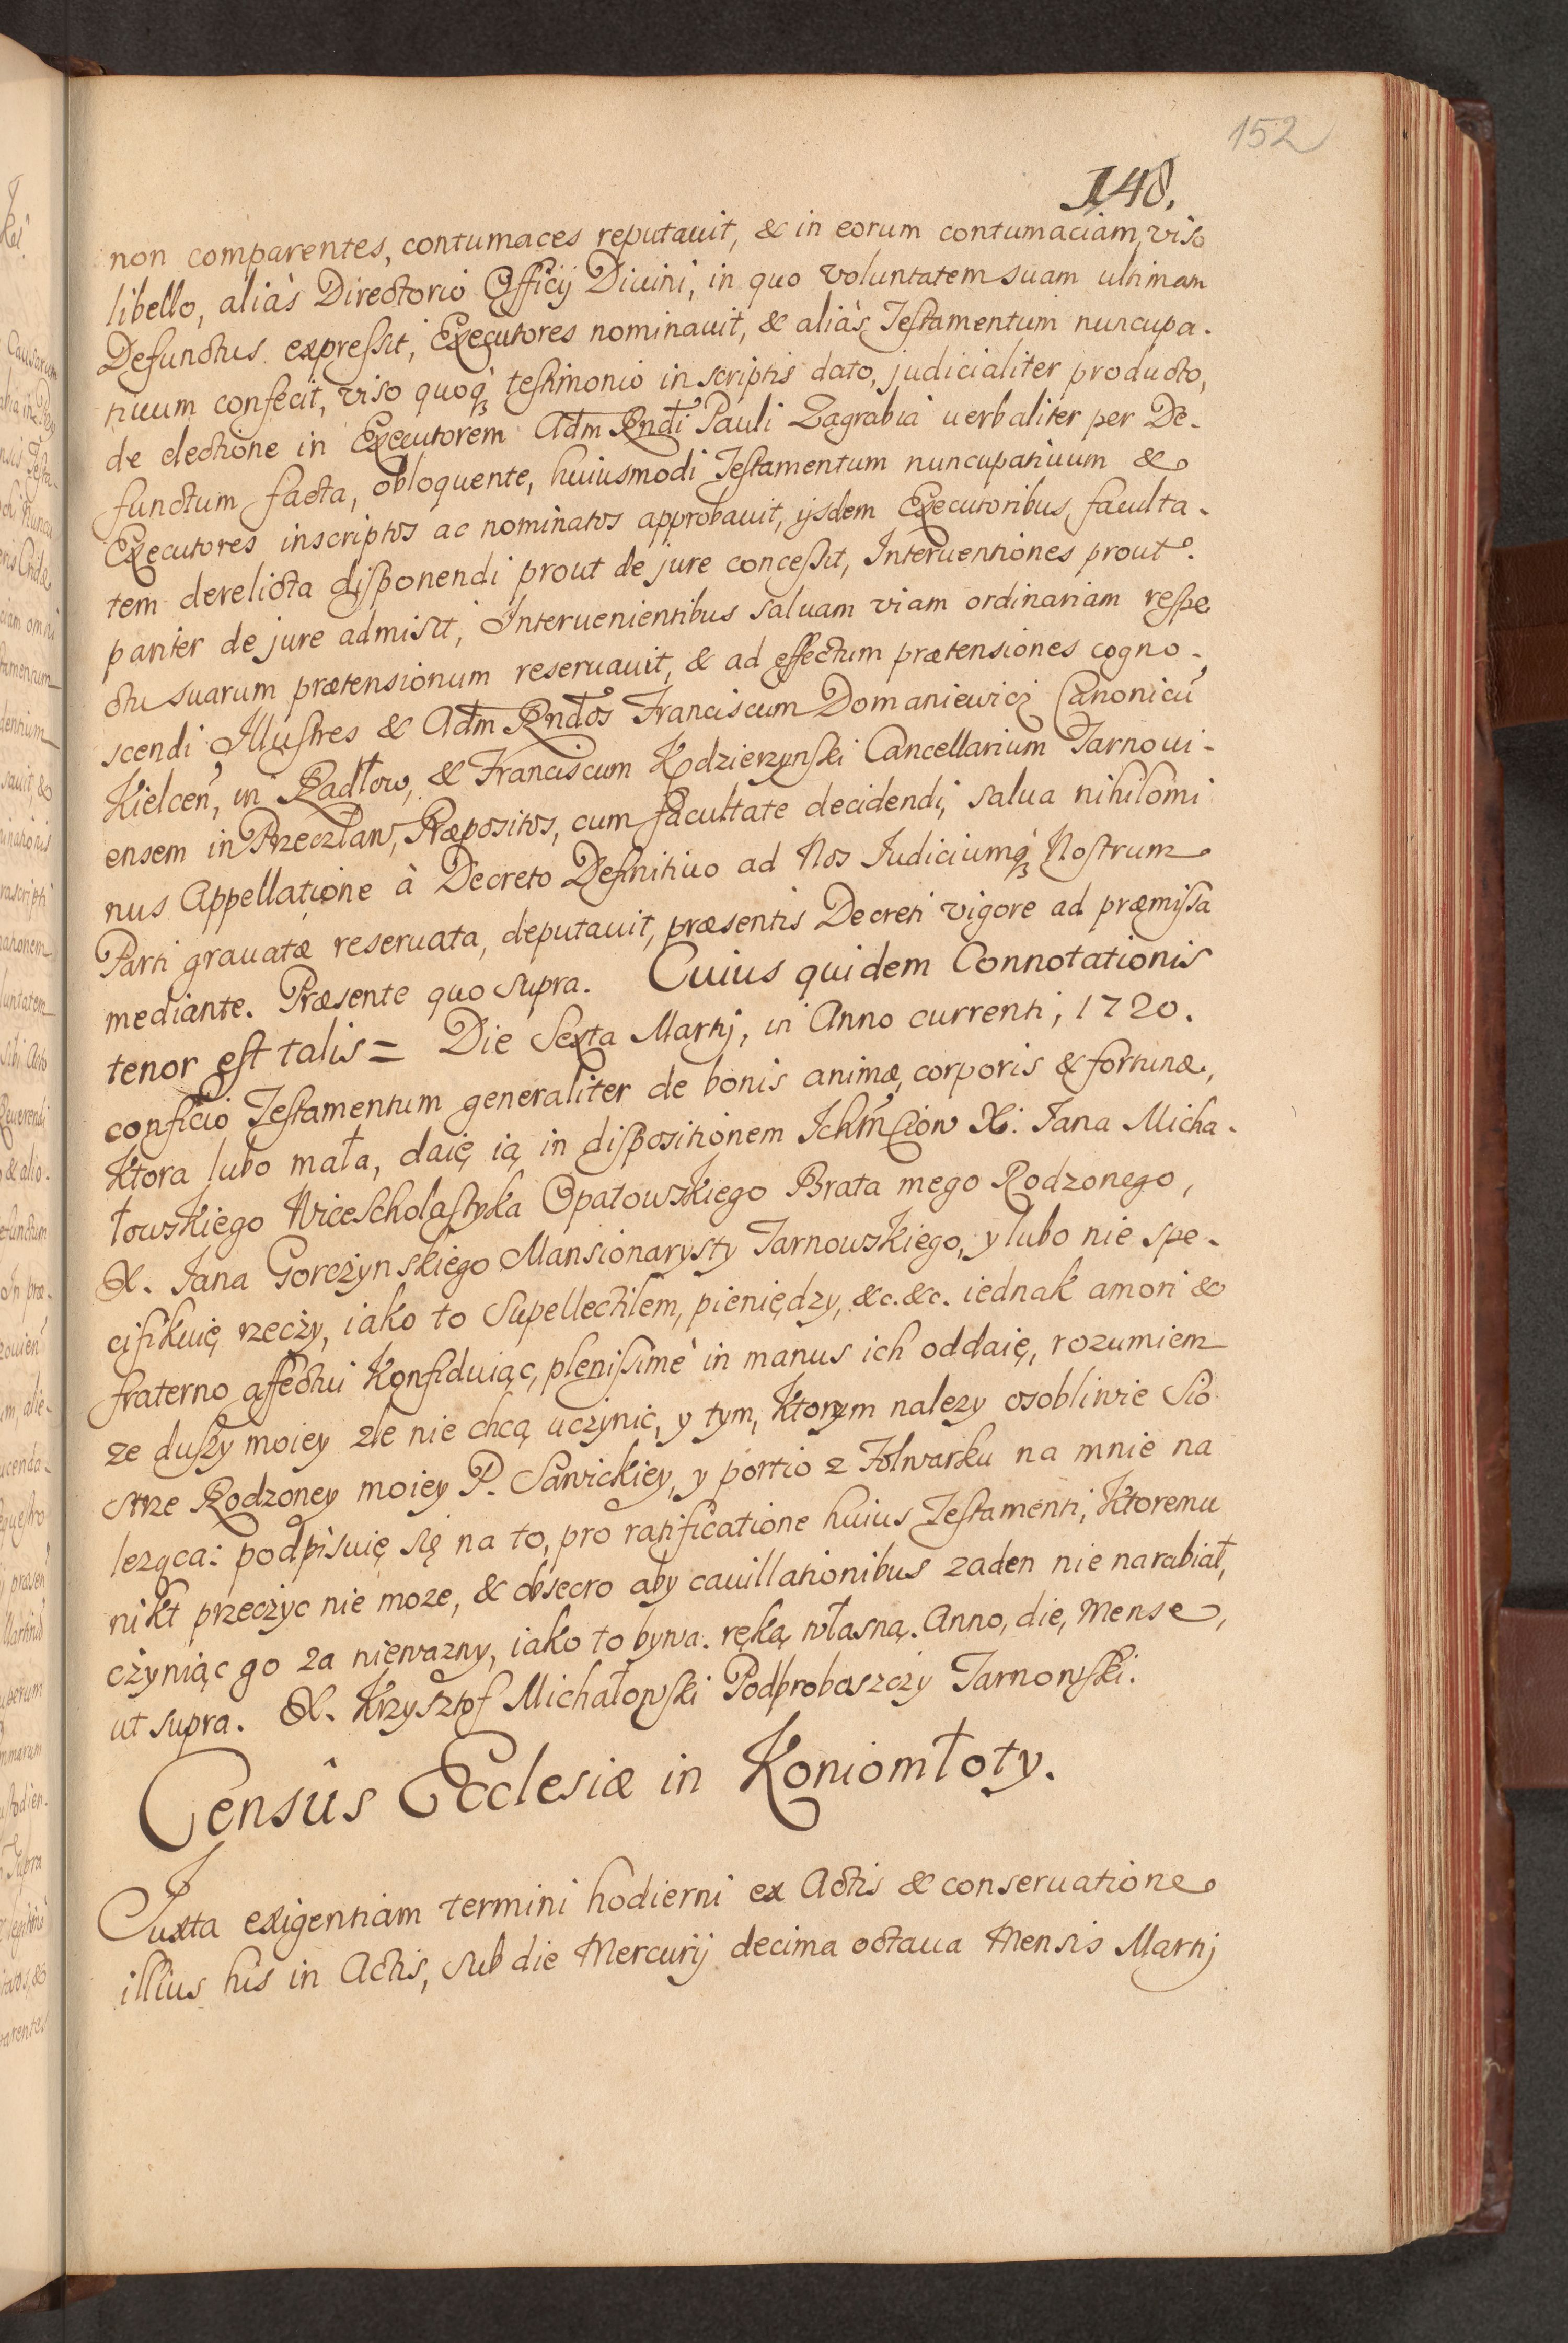 152
148.
non comparentes, contumaces reputauit, & in eorum contumaciam, viso
libello, aliàs Directorio Officij Diuini, in quo voluntatem suam ultimam
Defunctus expressit, Executores nominauit, & aliàs Testamentum nuncupa-
tiuum confecit, viso quoq₃ testimonio in scriptis dato, judicialiter producto,
de electione in Executorem Adm Rndi Pauli Zagrabia uerbaliter per De-
functum facta, obloquente, huiusmodi Testamentum nuncupatiuum &
Executores inscriptos ac nominatos approbauit, ijsdem Executoribus faculta-
tem derelicta disponendi prout de jure concessit, Interuentiones prout
pariter de jure admisit, Interuenientibus saluam viam ordinariam respe
ctu suarum prætensionum reseruauit, & ad effectum prætensiones cogno-
scendi Illustres & Adm Rndos Franciscum Domaniewicz Canonicũ
Kielcen, in Radłow, & Franciscum Kodzierzynski Cancellarium Tarnoui-
ensem in Przecztaw, Præpositos, cum facultate decidendi, salua nihilomi
nus Appellatione à Decreto Definitiuo ad Nos Iudiciumq₃ Nostrum
Parti grauatæ reseruata, deputauit, præsentis Decreti vigore ad præmissa
mediante. Præsente quo supra. Cuius quidem Connotationis
tenor est talis = Die Sexta Martij, in Anno currenti, 1720.
conficio Testamentum generaliter de bonis animæ, corporis & fortunæ,
Ktora lubo mała, daię ią in dispositionem Ichmciow X. Jana Micha-
łowskiego Vicescholastyka Opatowskiego Brata mego Rodzonego,
X. Jana Gorczynskiego Mansionarysty Tarnowskiego, y lubo nie spe-
cifikuię rzeczy, iako to Supellectilem, pieniędzy, &c. &c. iednak amori &
fraterno affectui Konfiduiąc, plenissimè in manus ich oddaię, rozumiem
ze duszy moiey zle nie chcą uczynic, y tym, Ktorym nalezy osobliwie Sio
strze Rodzoney moiey P. Sawickiey, y portio z Folwarku na mnie na
leząca: podpisuię się na to, pro ratificatione huius Testamenti, Ktoremu
nikt przeczyc nie moze, & obsecro aby cauillationibus zaden nie narabiał,
czyniąc go za niewazny, iako to bywa. ręką własną. Anno, die, Mense,
ut supra. X. Krzysztof Michałowski Podproboszczy Tarnowski.
Censûs Ecclesiæ in Koniomłoty.
Juxta exigentiam termini hodierni ex Actis & conseruatione
illius his in Actis, sub die Mercurij decima octaua Mensis Martij